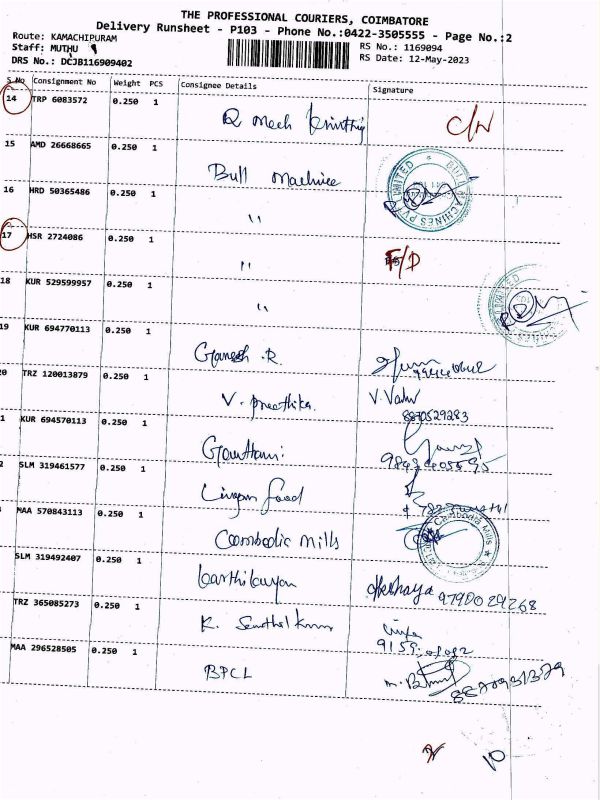 THE PROFESSIONAL COURIERS, COIMBATORE
Delivery Runsheet - P103 - Phone No.:0422-3505555 - Page No.:2
Route: KAMACHIPURAM
Staff: MUTHU
DRS No.: DCJB116909402
RS No.: 1169094
RS Date: 12-May-2023
S.No Consignment No Weight PCS Consignee Details Signature
14 TRP 6083572 0.250 1 R Mech C/N
15 AMD 26668665 0.250 1 Bull Machine
16 HRD 50365486 0.250 1 "
17 HSR 2724086 0.250 1 " F/D
18 KUR 529599957 0.250 1 "
19 KUR 694770113 0.250 1 Ganesh .R
0 TRZ 120013879 0.250 1 V. Preethika. V. Valar 8870529283
1 KUR 694570113 0.250 1 Gouthami
2 SLM 319461577 0.250 1 food
MAA 570843113 0.250 1 Coombodic Mills
SLM 319492407 0.250 1 karthikeyan Akshaya 9790029268
TRZ 365085273 0.250 1 K. Senthil kumar
MAA 296528505 0.250 1 BPCL